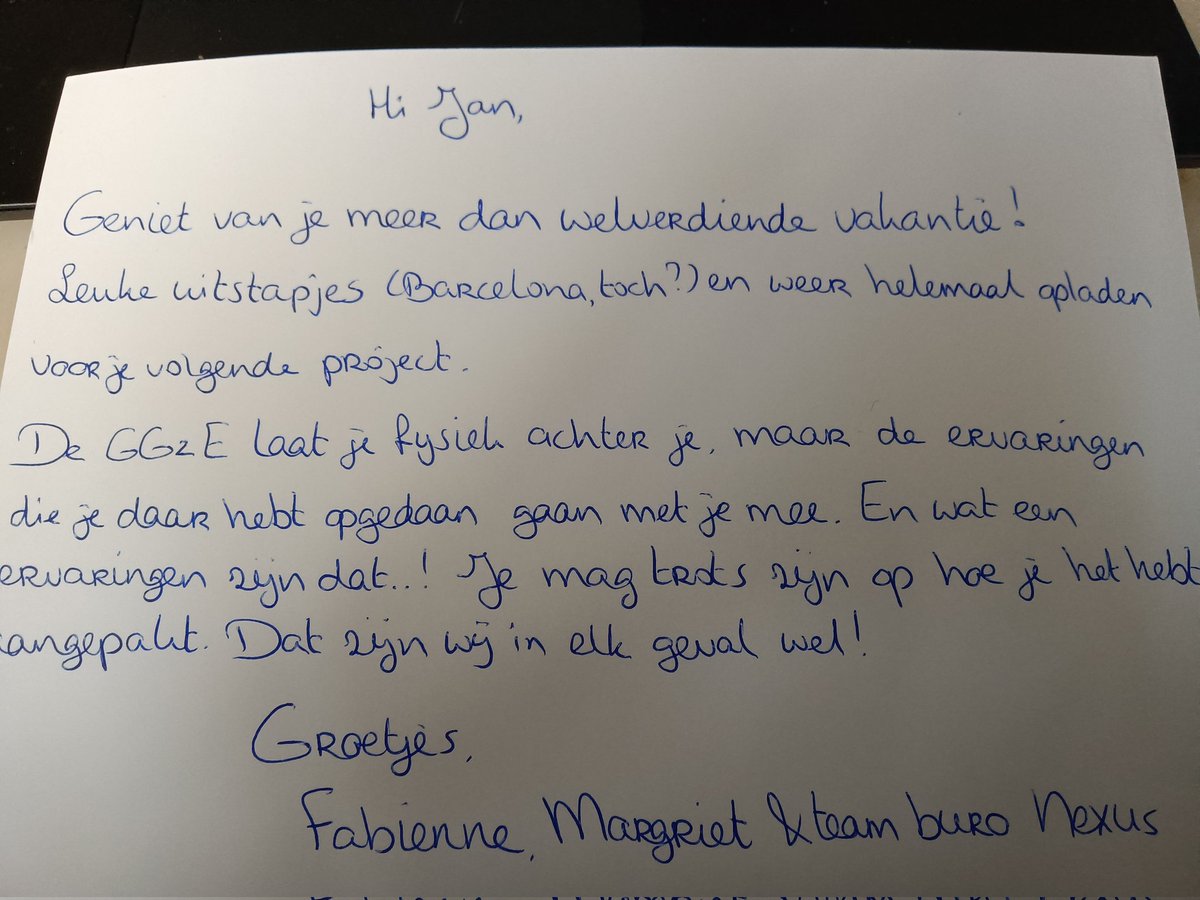 Hi Jan,
Geniet van je meer dan welverdiende vakantie!
Leuke uitstapjes (Barcelona, toch?) en weer helemaal opladen
voor je volgende project.
De GGzE laat je fysiek achter je, maar de ervaringen
die je daar hebt opgedaan gaan met je mee. En wat een
ervaringen zijn dat..! Je mag trots zijn op hoe je het hebt
aangepakt. Dat zijn wij in elk geval wel!
Groetjes,
Fabienne, Margriet & team buro Nexus